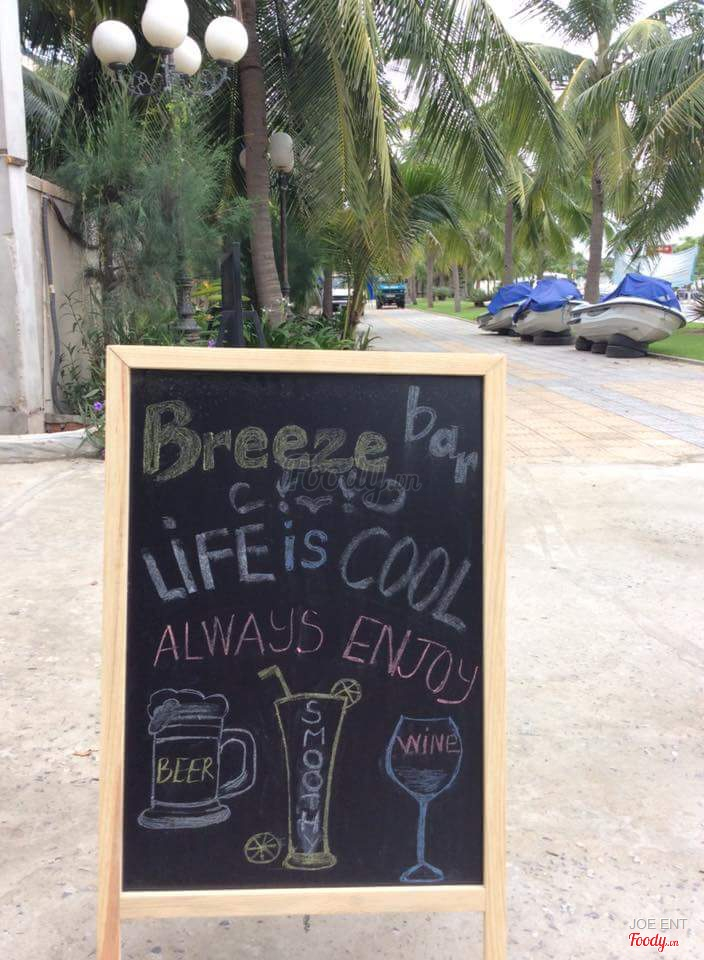 Breeze bar
Foody.vn
LiFE is COOL
ALWAYS ENJOY
BEER
SMOOTHY
WINE
JOE ENT
Foody.vn